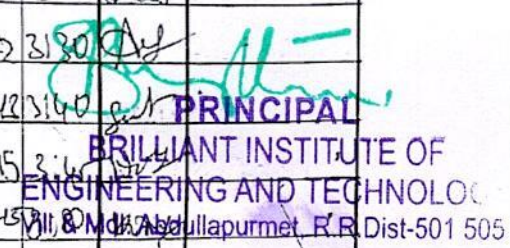 3130
3140 PRINCIPAL
BRILLIANT INSTITUTE OF
ENGINEERING AND TECHNOLO
Vill & Mdl. Abdullapurmet, R.R Dist-501 505